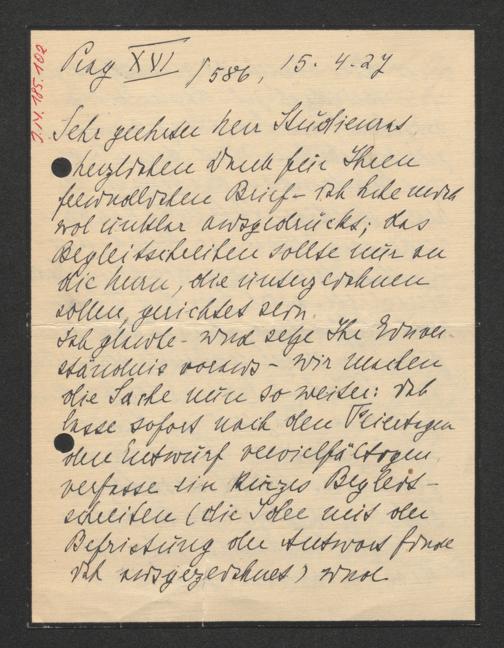 2.N.185.102
Prag XVI / 586, 15. 4. 27
Sehr geehrter Herr Studienrat,
herzlichen Dank für Ihren
freundlichen Brief – ich habe mich
wol unklar ausgedrückt; das
Begleitschreiben sollte nur an
die Herrn, die unterzeichnen
sollen, gerichtet sein.
Ich glaube – und setze Ihr Einver-
ständnis voraus – wir machen
die Sache nun so weiter: Ich
lasse sofort nach den Feiertagen
den Entwurf vervielfältigen,
verfasse ein kurzes Begleit-
schreiben (die Idee mit der
Befristung der Antwort finde
ich ausgezeichnet) und